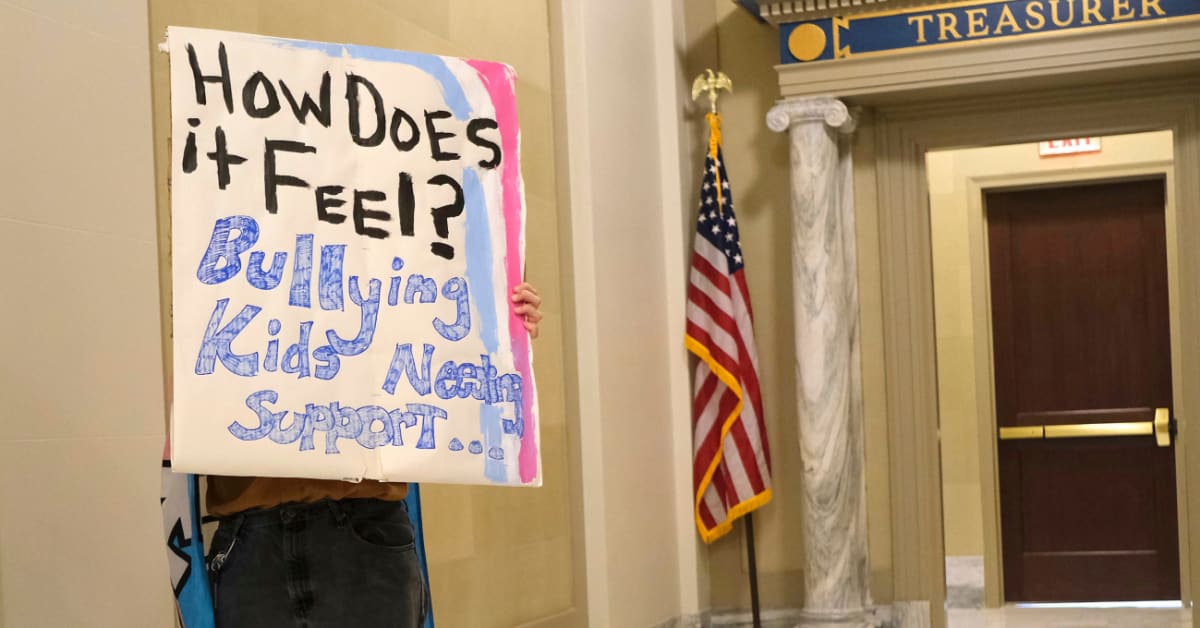 How Does
it Feel?
Bullying
Kids Needing
Support...
TREASURER
EXIT